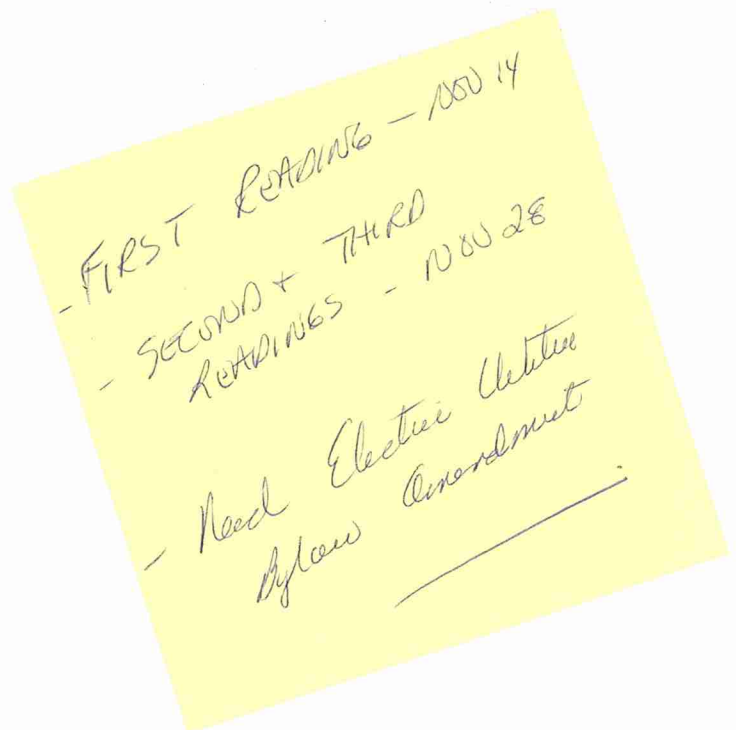 - FIRST READING - NOV 14
- SECOND + THIRD
READINGS - NOV 28
- Need Electric Utilities
Bylaw Amendment